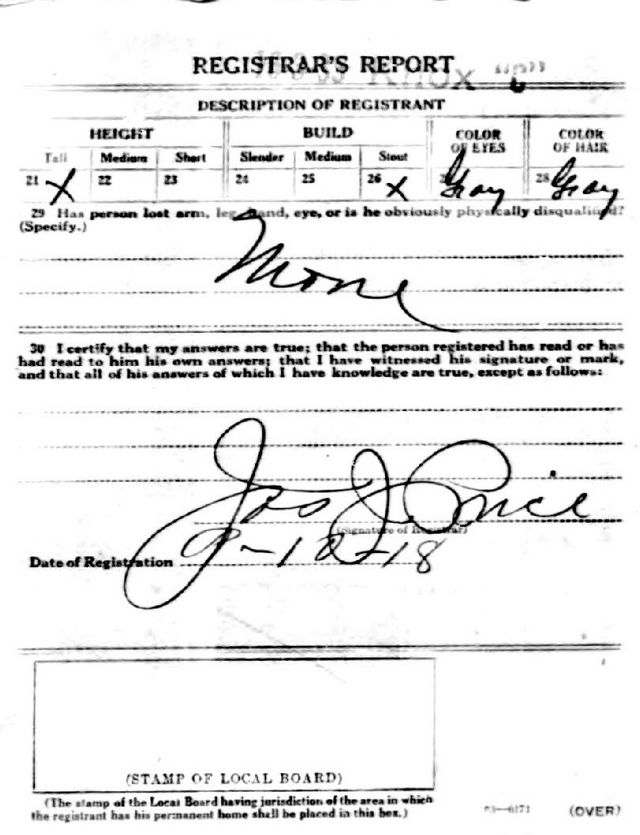 REGISTRAR'S REPORT
DESCRIPTION OF REGISTRANT
HEIGHT BUILD COLOR OF EYES COLOR OF HAIR
Tall Medium Short Slender Medium Stout
21 X 22 23 24 25 26 X Gray 28 Gray
29 Has person lost arm, leg, hand, eye, or is he obviously physically disqualified?
(Specify.)
None
30 I certify that my answers are true; that the person registered has read or has
had read to him his own answers; that I have witnessed his signature or mark,
and that all of his answers of which I have knowledge are true, except as follows:
Jas J. Price
(Signature of Registrar)
Date of Registration 9-12-18
(STAMP OF LOCAL BOARD)
(The stamp of the Local Board having jurisdiction of the area in which
the registrant has his permanent home shall be placed in this box.)
03—6171 (OVER)